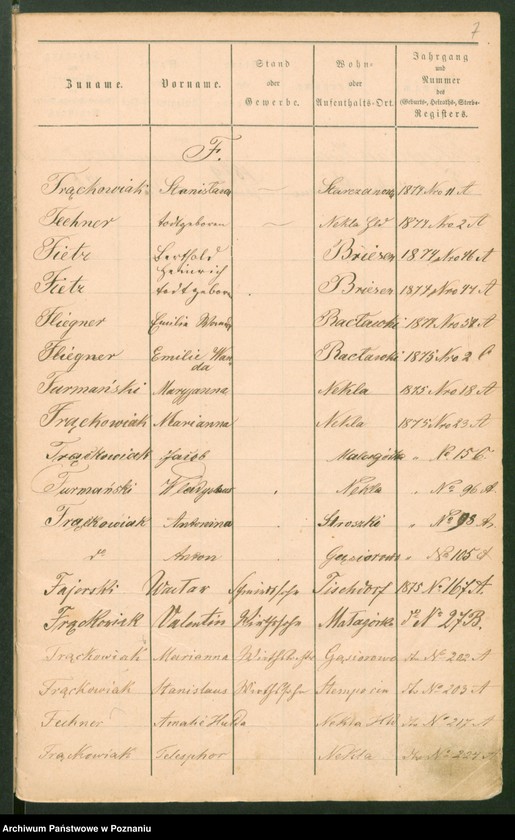 7
Zuname. Vorname. Stand oder Gewerbe. Wohn- oder Aufenthalts-Ort. Jahrgang und Nummer des (Geburts-, Heiraths-, Sterbe- Registers.
F.
Frąchowiak Stanislaus 1874 Nro 11 A
Fechner todtgeboren Nekla Hld 1874 Nro 2 A
Fietz Berthold Heinrich Briesen 1874 Nro 46 A
Fietz todtgeboren Briesen 1874 Nro 47 A
Fliegner Emilie Bacławki 1874 Nro A
Fliegner Emilie Wanda Bacławki 1875 Nro 2 C
Furmański Maryanna Nekla 1875 Nro 18 A
Frąckowiak Marianna Nekla 1875 Nro 23 A
Frąckowiak Jacob Małagórka " No 15 C.
Furmański Wladyslaus Nekla " No 96 A.
Frąckowiak Antonina Stroszki " No 98 A.
do Anton Gąsiorowo " No 105 A
Fajerski Tischdorf 1875 No 167 A.
Frąckowiak Valentin Wirthssohn Małagórka do No 27 B.
Frąckowiak Marianna Gąsiorowo No 202 A
Frąckowiak Stanislaus Wirthssohn No 203 A
Fechner Amalie Hulda Nekla Hld No 217 A
Frąckowiak Telesphor Nekla No A
Archiwum Państwowe w Poznaniu